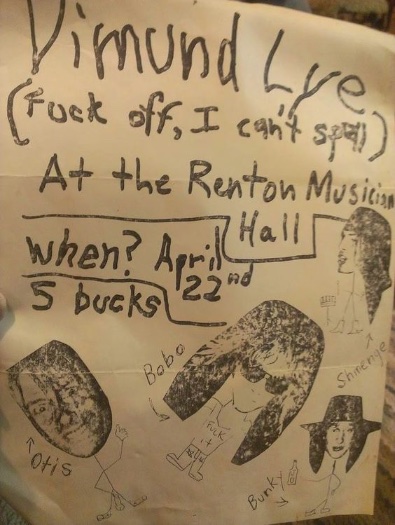 Dimund Lye
(Fuck off, I can't spell)
At the Renton Musician
Hall
when? April
22nd
5 bucks
Bobo
Otis
Bunky
FUCK
it